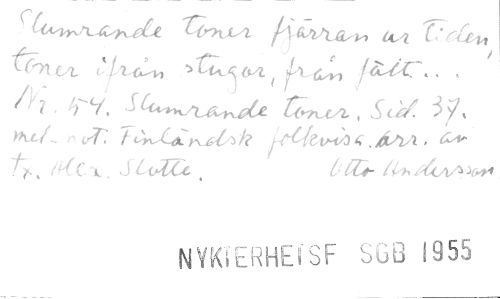 Slumrande toner fjärran ur tiden,
toner ifrån stugor, från fält...
Nr. 54. Slumrande toner. Sid. 37.
mel. not. Finländsk folkvisa. arr. av
tx. Alex. Slotte. Otto Andersson
NYKTERHETSF SGB 1955